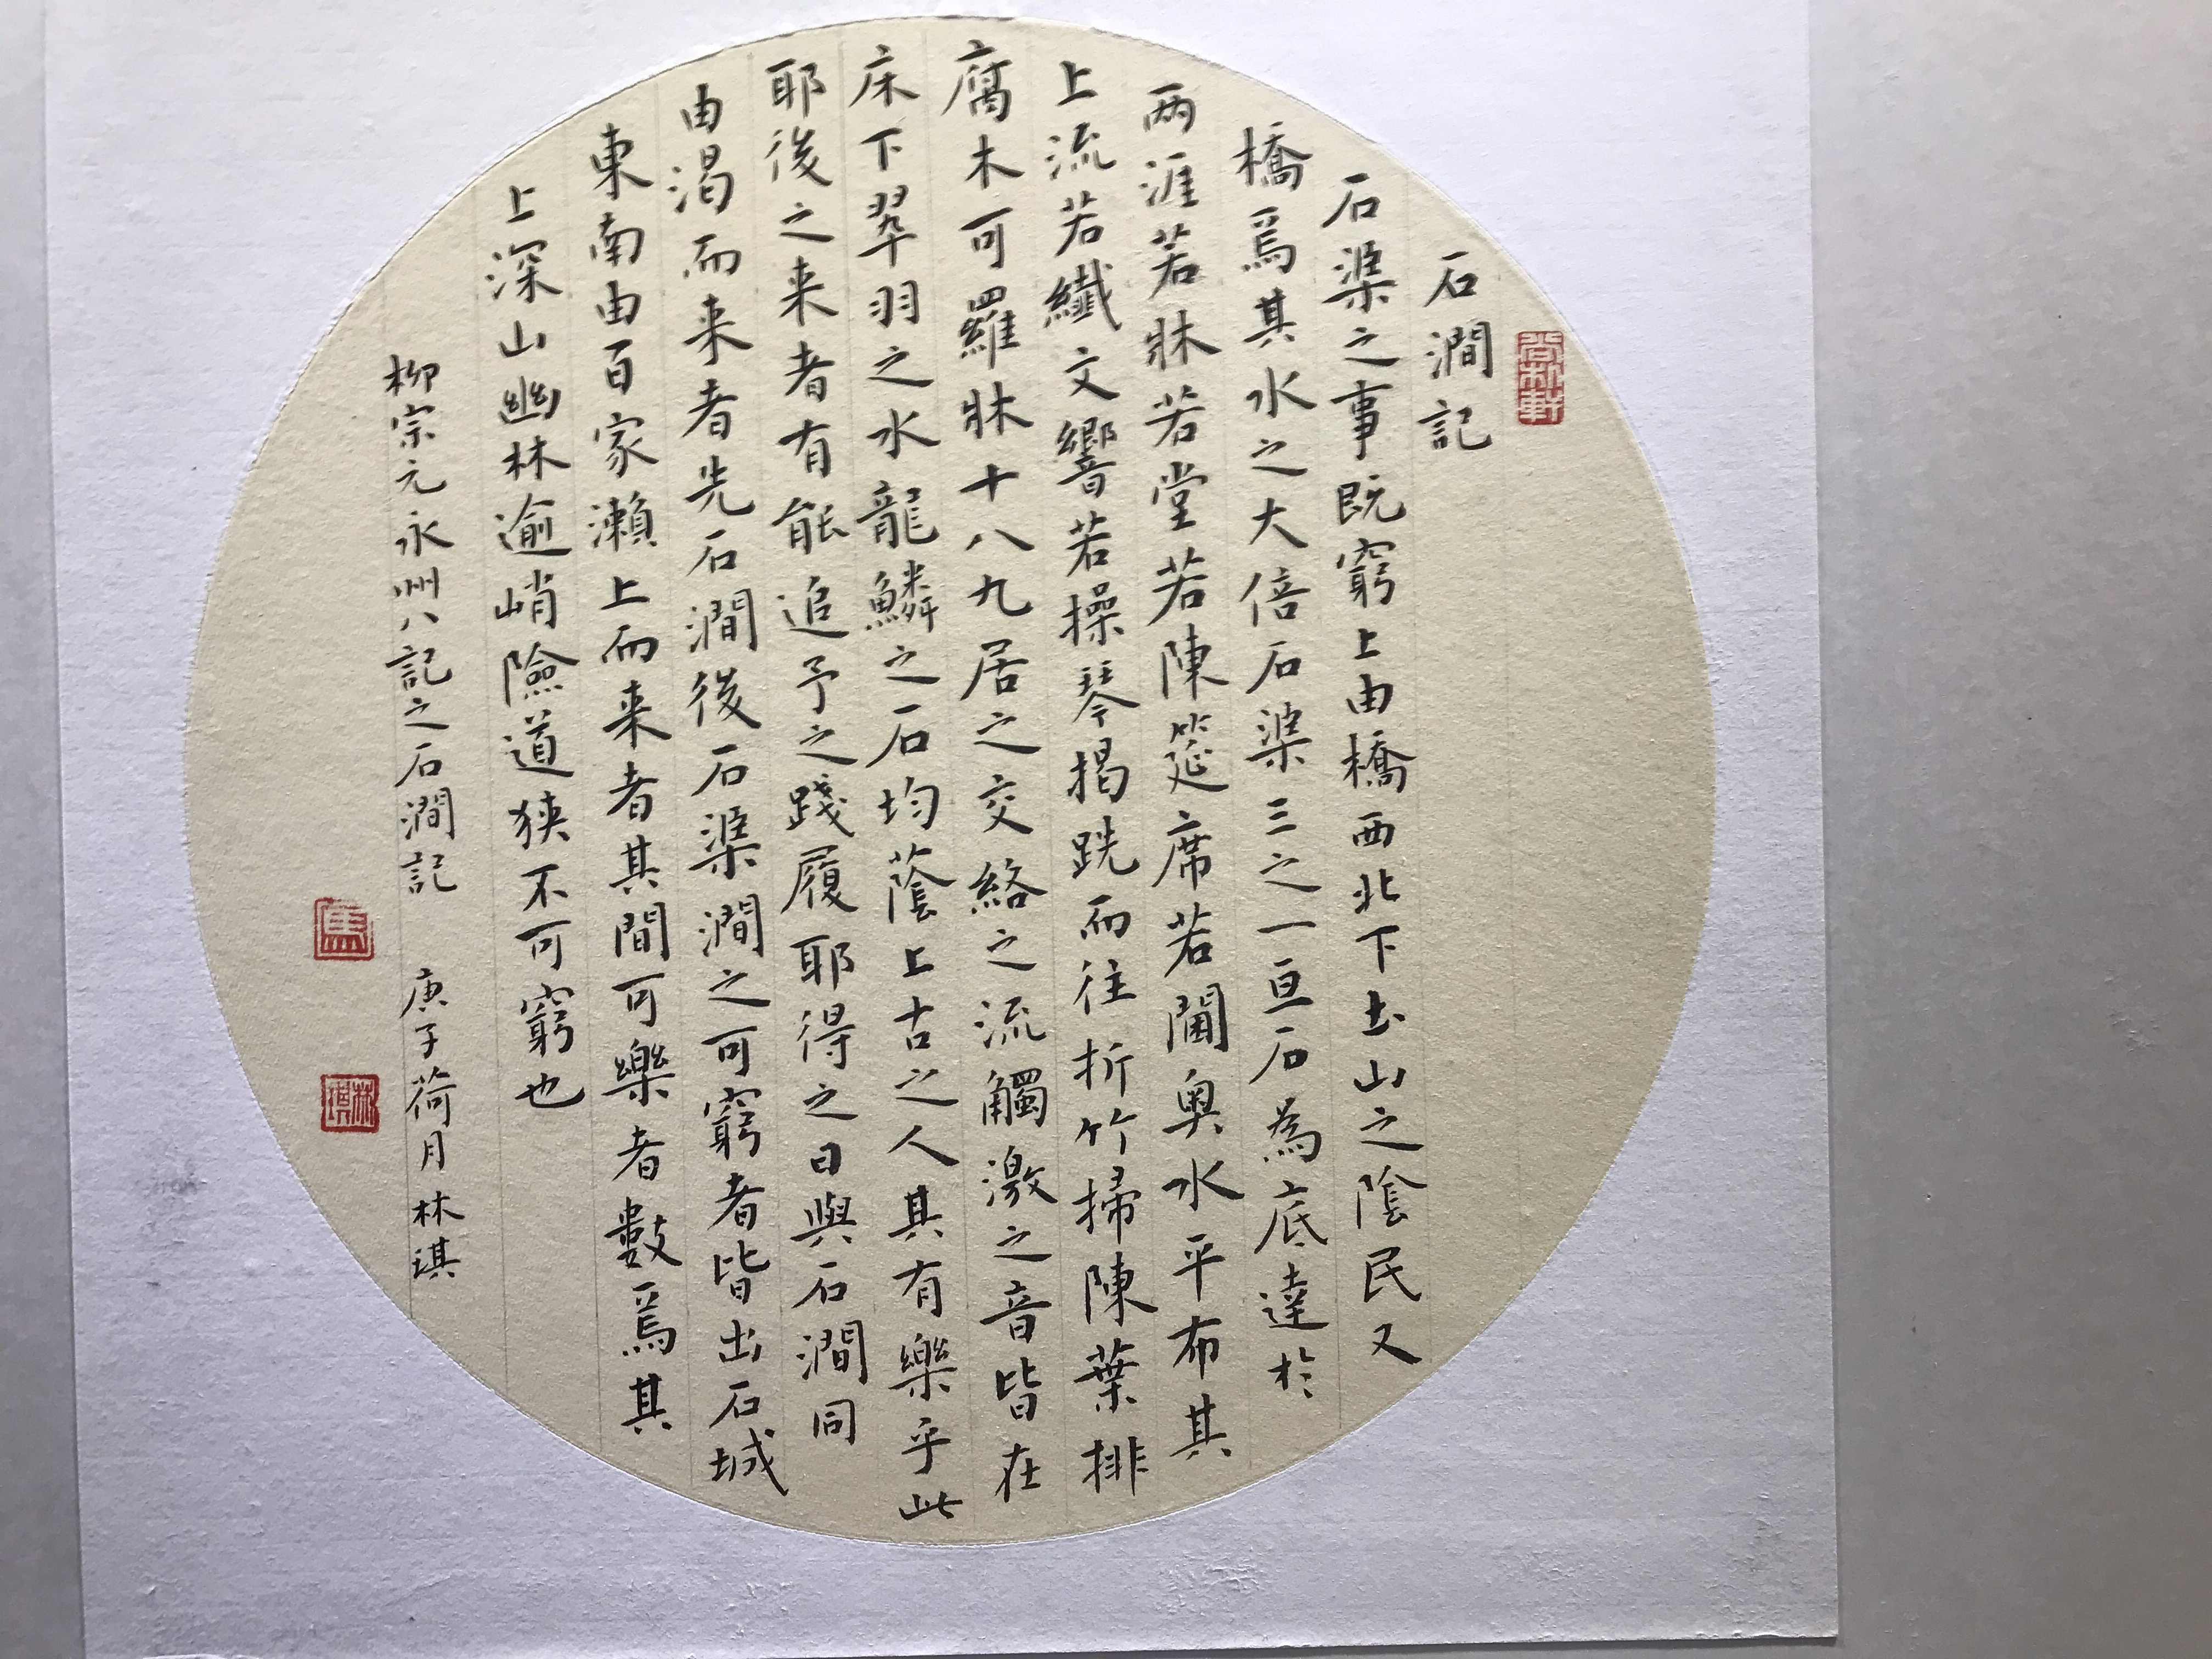 石澗記
石渠之事既窮上由橋西北下土山之陰民又
橋焉其水之大倍石渠三之一亘石為底達於
兩涯若牀若堂若陳筵席若閫奧水平布其
上流若纖文響若操琴揭跣而往折竹掃陳葉排
腐木可羅牀十八九居之交絡之流觸激之音皆在
床下翠羽之水龍鱗之石均蔭上古之人其有樂乎此
耶後之来者有能追予之踐履耶得之日與石澗同
由渴而来者先石澗後石渠澗之可窮者皆出石城
東南由百家瀨上而来者其間可樂者數焉其
上深山幽林逾峭險道狹不可窮也
柳宗元永州八記之石澗記 庚子荷月林琪
馬
林琪